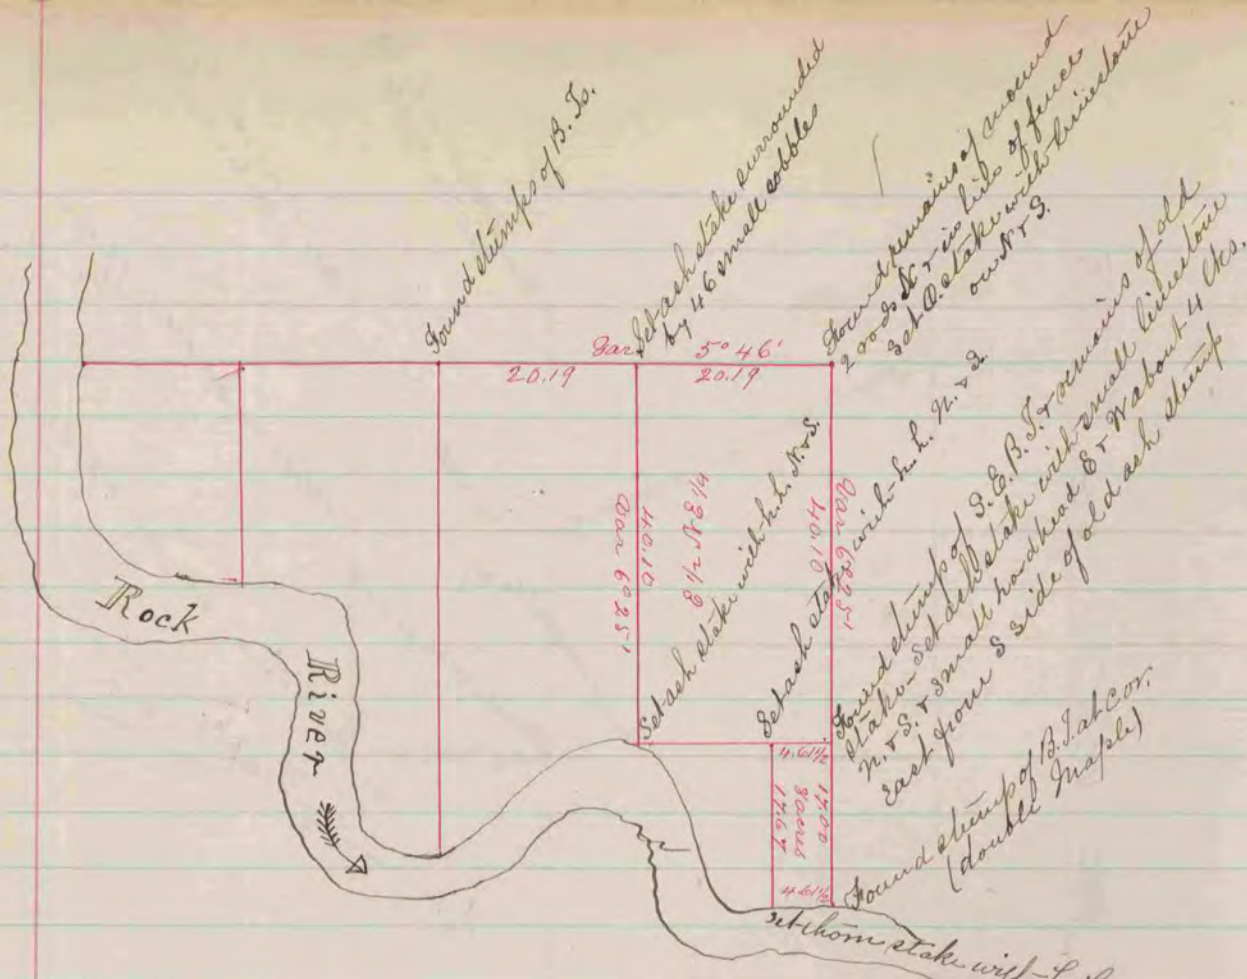 Found stumps of B. Ts.
Set ash stake surrounded
by 46 small cobbles
Found remains of mound
2 rods N & in line of fence
Set O. stake with limestone
on N & S.
Var 5° 46'
20.19
20.19
Var 6° 25'
40.10
E 1/2 N E 1/4
40.10
Var 6° 25'
Set ash stake with h.h. N. & S.
Set ash stake with h.h. N. & S.
Found stump of S.E. B.T. & remains of old
stake - Set ash stake with small limestone
N. & S. & small hardhead E & W about 4 lks.
East from S side of old ash stump
Rock
River
4.61 1/2
17.00
8 acres
17.67
4.61 1/2
Found stump of B.T. at cor.
(double Maple)
Set thorn stake with